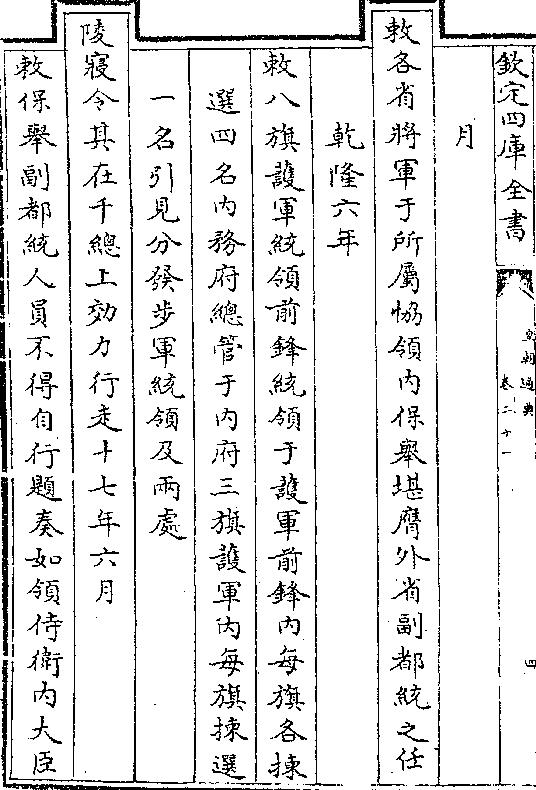 欽定四庫全書
皇朝通典
卷二十一
四
月
敕各省將軍于所屬協領內保舉堪膺外省副都統之任
乾隆六年
敕八旗護軍統領前鋒統領于護軍前鋒內每旗各揀
選四名內務府總管于內府三旗護軍內每旗揀選
一名引見分發步軍統領及兩處
陵寢令其在千總上効力行走十七年六月
敕保舉副都統人員不得自行題奏如領侍衛內大臣